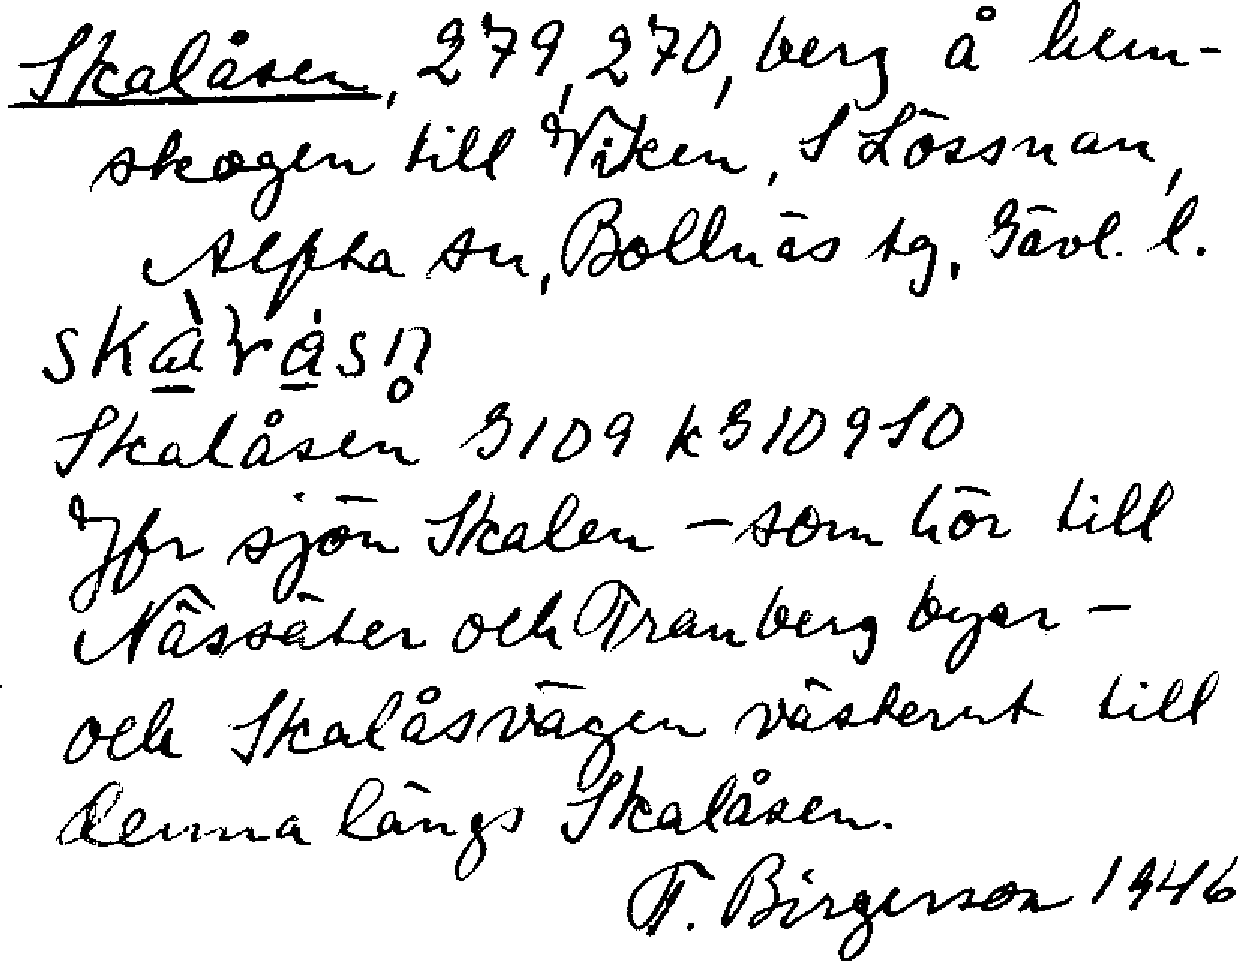 Skalåsen, 279, 270, berg å hem-
skogen till Viken, S Lössnan,
Alfta sn, Bollnäs tg, Gävl. l.
Skalåsen 3109 k310910
Jfr sjön Skalen – som hör till
Nässäter och Tranberg byar –
och Skalåsvägen västerut till
denna längs Skalåsen.
T. Birgerson 1946